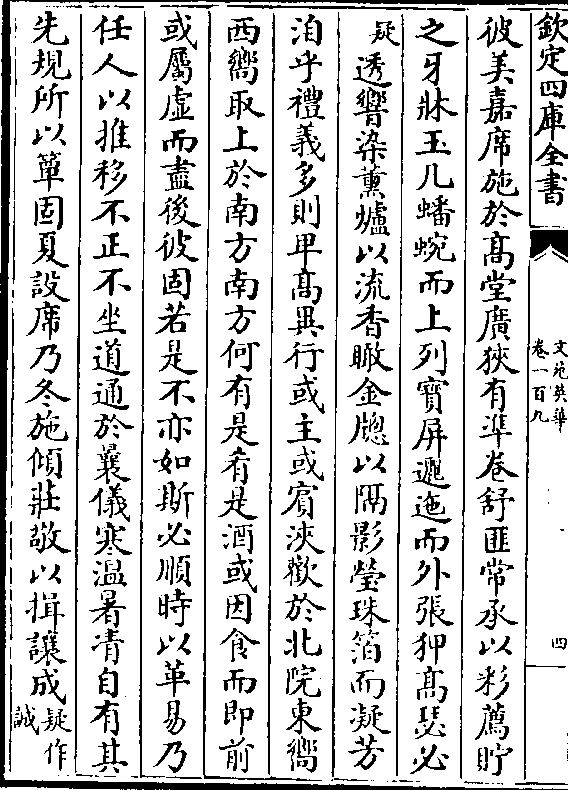 欽定四庫全書
文苑英華
卷一百九
四
彼美嘉席施於高堂廣狹有準卷舒匪常承以彩薦貯
之牙牀玉几蟠蜿而上列寳屏邐迤而外張狎高瑟必
疑透響染薰爐以流香瞰金牕以隔影瑩珠箔而凝芳
洎乎禮義多則甲高異行或主或賓浹歡於北院東嚮
西嚮取上於南方南方何有是肴是酒或因食而即前
或屬虚而盡後彼固若是不亦如斯必順時以革易乃
任人以推移不正不坐道通於曩儀寒温暑凊自有其
先規所以簟固夏設席乃冬施傾莊敬以揖讓成疑作
誠